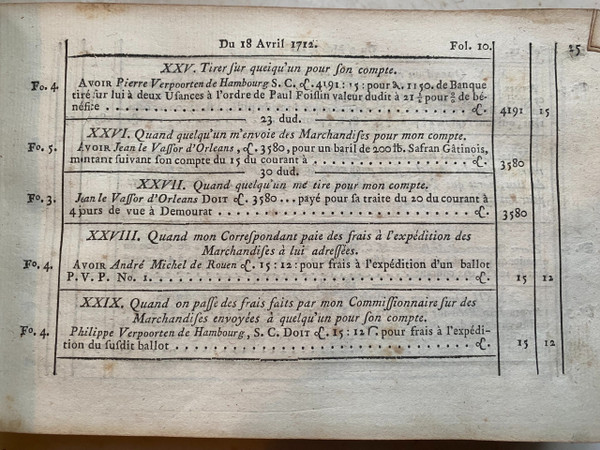 Du 18 Avril 1712. Fol. 10.
25
XXV. Tirer ſur quelqu'un pour ſon compte.
Fo. 4. AVOIR Pierre Verpoorten de Hambourg S. C. ₶. 4191 : 15 : pour 1150. de Banque
tiré ſur lui à deux Uſances à l'ordre de Paul Foiſſin valeur dudit à 21 pour de bé-
néfice . . . ₶. 4191 15
23 dud.
XXVI. Quand quelqu'un m'envoie des Marchandiſes pour mon compte.
Fo. 5. AVOIR Jean le Vaſſor d'Orleans, ₶. 3580, pour un baril de 200 lb. Safran Gâtinois,
montant ſuivant ſon compte du 15 du courant à . . . ₶. 3580
30 dud.
XXVII. Quand quelqu'un me tire pour mon compte.
Fo. 3. Jean le Vaſſor d'Orleans DOIT ₶. 3580 . . . payé pour ſa traite du 20 du courant à
4 jours de vue à Demourat . . . ₶. 3580
XXVIII. Quand mon Correſpondant paie des frais à l'expédition des
Marchandiſes à lui adreſſées.
Fo. 4. AVOIR André Michel de Rouen ₶. 15 : 12 : pour frais à l'expédition d'un ballot
P. V. P. No. 1. . . . ₶. 15 12
XXIX. Quand on paſſe des frais faits par mon Commiſſionnaire ſur des
Marchandiſes envoyées à quelqu'un pour ſon compte.
Fo. 4. Philippe Verpoorten de Hambourg, S. C. DOIT ₶. 15 : 12 ſ. pour frais à l'expédi-
tion du ſuſdit ballot . . . ₶. 15 12